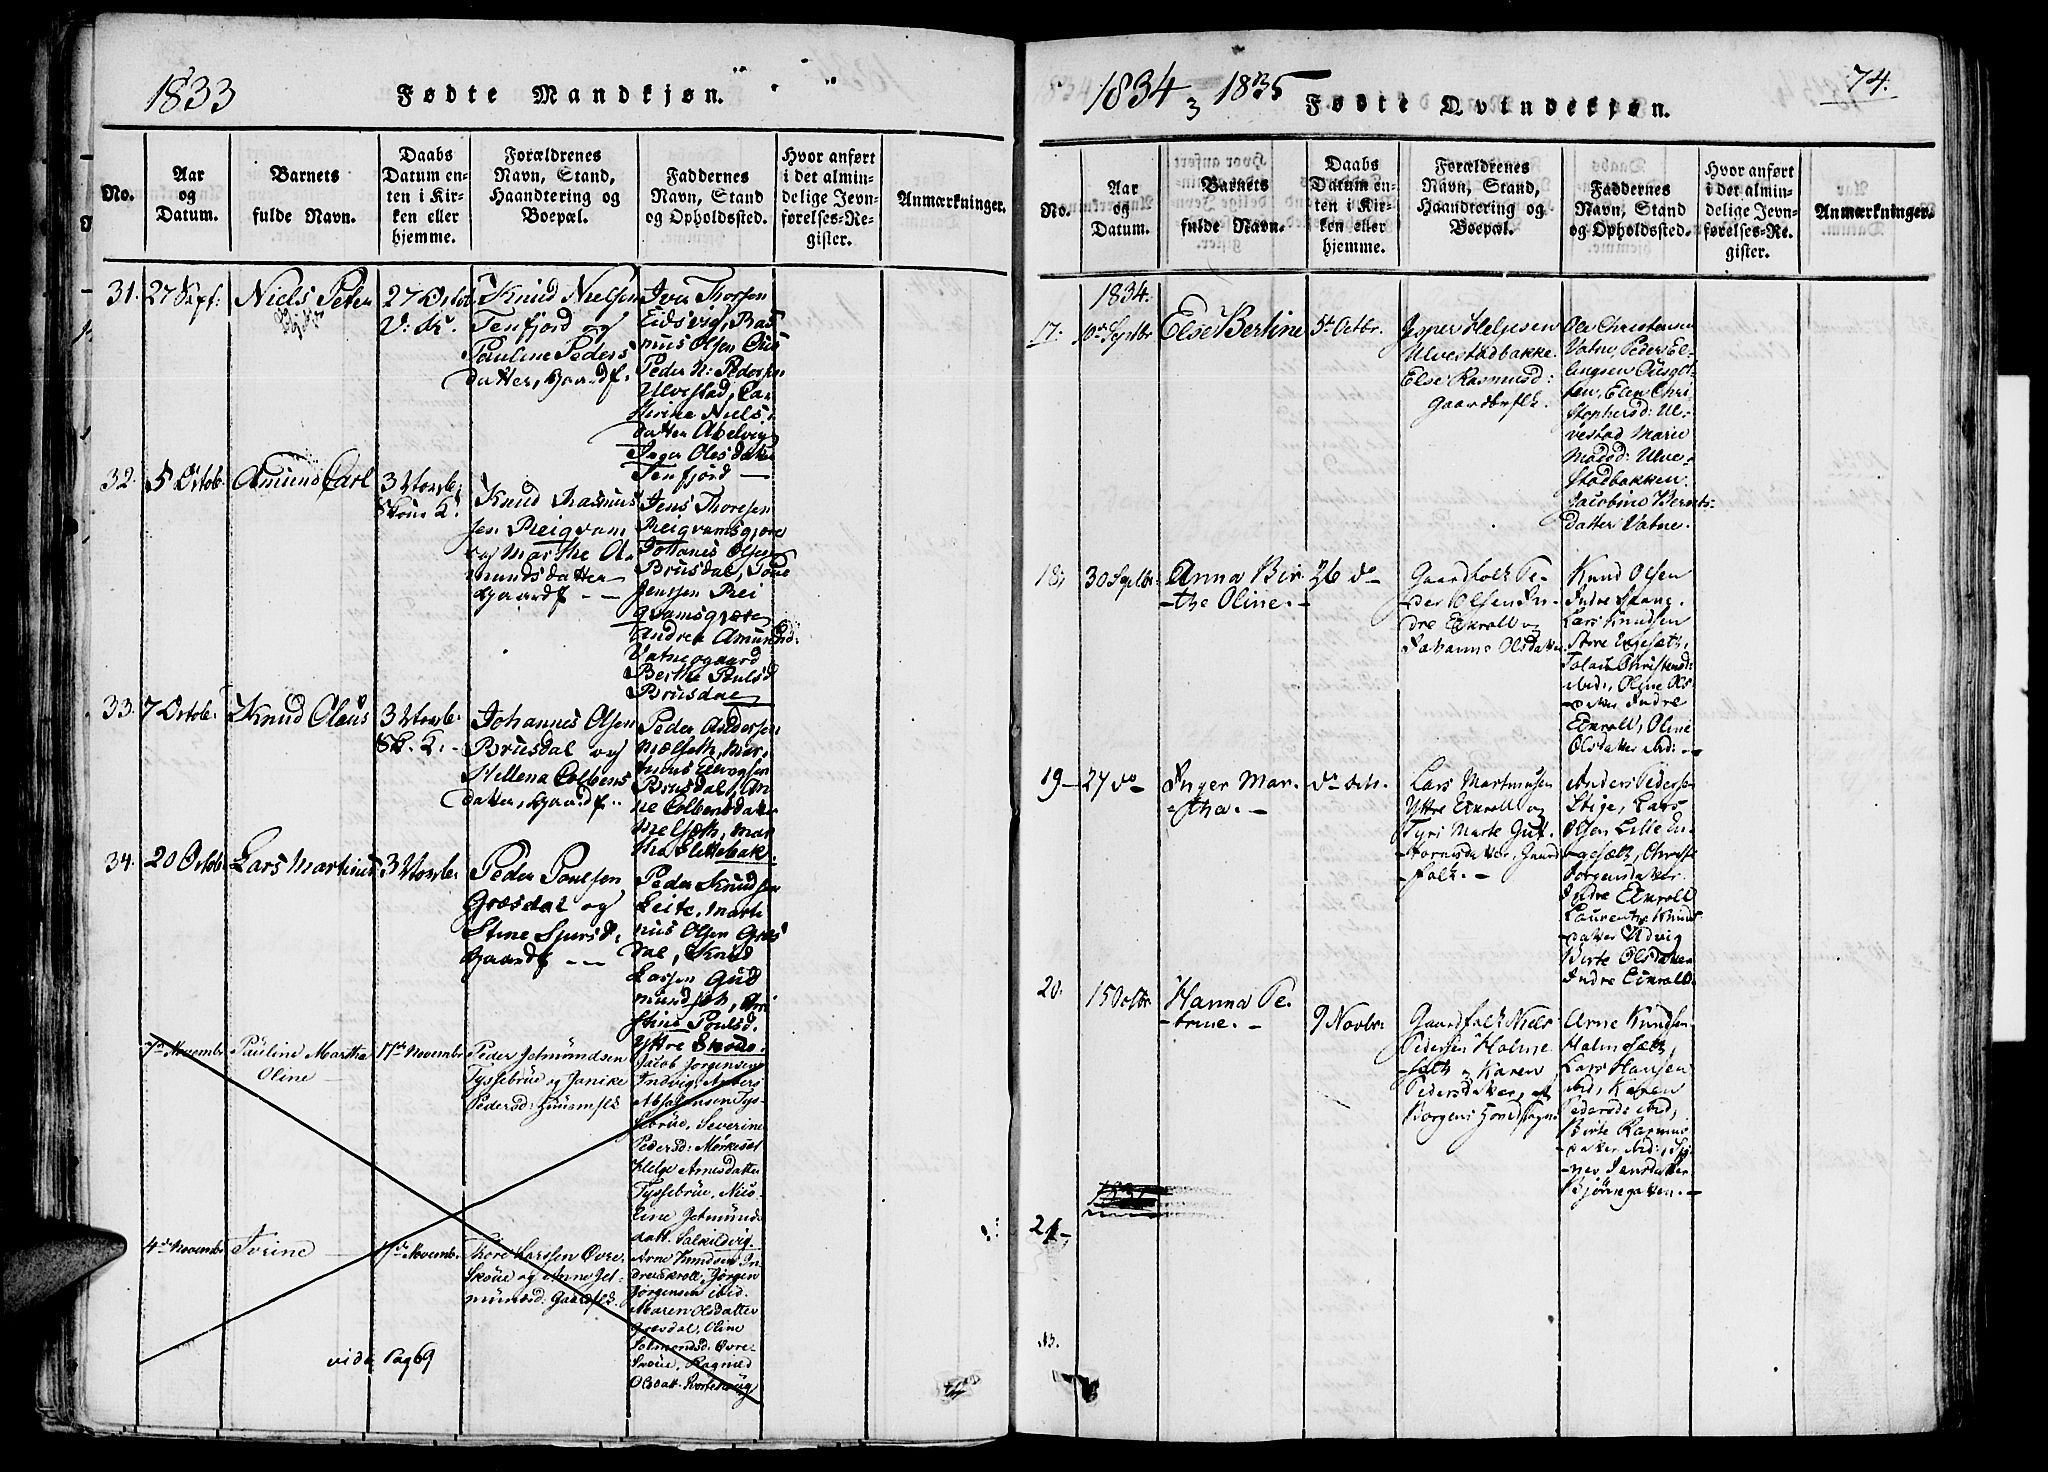 1833 Fødte Mandkjøn.
No.
Aar
og
Datum.
Barnets
fulde Navn.
Daabs
Datum en-
ten i Kir-
ken eller
hjemme.
Forældrenes
Navn, Stand,
Haandtering og
Boepæl.
Faddernes
Navn, Stand
og Opholdssted.
Hvor anført
i det almin-
delige Jevn-
førelses-Re-
gister.
Anmærkninger.
31. 27 Sept: Niels Peter
27 Octob
V: K.
Knud Nielsen
Tenfjord og
Pauline Peders
datter, Gaardf.
Iver Thorsen
Eidsvig, Ras
mus Olsen
Peder N: Pedersen
Ulvestad, Ca
thrine Niels
datter Abelvig
Inger Olesdatter
Tenfjord —
32. 5 Octob. Amund Carl
3 Novbr
Skoue K.
Knud Rasmus
sen Reigvam
og Marthe A
mundsdatter
Gaardf — —
Jens Thoresen
Reigvamsgjære
Johanes Olsen
Brusdal, Tore
Jenssen Rei
gvamsgjære
Andrea Amunds
Vatnegaard
Berthe Paulsd
Brusdal
33. 7 Octob. Knud Olaus
3 Novbr.
Sk. K. -
Johannes Olsen
Brusdal og
Hellena Colbens
datter, Gaardf.
Peder Andersen
Mælseth, Mar
Brusdal, An
ne Colbensdatter
Melsæth, Mar
tha Slettebak.
34. 20 Octob Lars Martinus 3 Novbr.
Peder Poulsen
Græsdal og
Stine Sjursd.
Gaardf — —
Peder Knudsen
Leite, Marti
nus Olsen Græs
dal, Knud
Larsen Gud
mundset,
stine Poulsd.
Yttre Skoue.
7de Novembr Pauline Martha
Oline —
17de Novembr
Peder Jetmundsen
Tyssebrue og Janike
Pedersd: Huusmflk
Jacob Jørgensen
Indvig, Anders
Absalonsen Tys-
sebrue, Severine
Pedersd: Mørkeset
Helge Arnesdatter
Tyssebrue, Nico-
line Jetmunds
datt. Solkildvig.
4de Novembr Torine — 17de Novembr
Thore Larssen Øvre
Skoue og Anne Jet-
mundsd: Gaardflk.
Arne Knudsen In
dre Ekroll, Jørgen
Jørgensen ibid.
Maren Olsdatter
Græsdal, Oline
Salmondsd. Øvre
Skoue, Ragnild
Olsdatt.
vide Pag 69
1834 3 1835 Fødte Qvindekjøn. 74.
No.
Aar
og
Datum.
Barnets
fulde Navn.
Daabs
Datum en-
ten i Kir-
ken eller
hjemme.
Forældrenes
Navn, Stand,
Haandtering og
Boepæl.
Faddernes
Navn, Stand
og Opholdssted.
Hvor anført
i det almin-
delige Jevn-
førelses-Re-
gister.
Anmærkninger.
1834.
17. 10de Septbr Else Bertine 5te Octbr.
Jesper Helgesen
Ulvestadbakke.
Else Rasmusd:
Gaardbrflk.
Ole Christensen
Vatne, Peder El-
lingsen
Elen Chri-
stophersd: Ul-
vestad Marie
Madsd: Ulve-
stadbakken.
Jacobine Bernts-
datter Vatne.
18, 30 Septbr.
Anna Bir-
the Oline. -
26 do
Gaardfolk Pe-
der Olsen In-
dre Ekroll og
Johanne Olsdatter
Knud Olsen
Indre Spang.
Lars Knudsen
Store Engesæth,
Christensd:
ibid:, Oline Ols
datter Indre
Ekroll, Oline
Olsdatter ibid: -
19 — 27 do
Inger Mar-
tha. -
do do.
Lars Martinusen
Yttre Ekroll og
Gut-
tormsdatter, Gaard
folk. -
Anders Pedersen
Stige, Lars
Olsen Lille En-
gesæth, Christi
Jørgensdatter
Indre Ekroll
Laurentze Knuds
datter Udvig
Birte Olsdatter
Indre Ekroll.
20. 15 Octbr
Hanna Pe-
trine. -
9 Novbr.
Gaardfolk Niels
Pedersen Holme-
sæth og Karen
Pedersdatter, af
Borgens Hovedsogn
Arne Knudsen
Holmesæth,
Lars Hansen
ibid, Karen
Pedersdr ibid,
Birte Rasmus
datter ibid:,
Jensdatter
Bjørnebakken. -
21 -